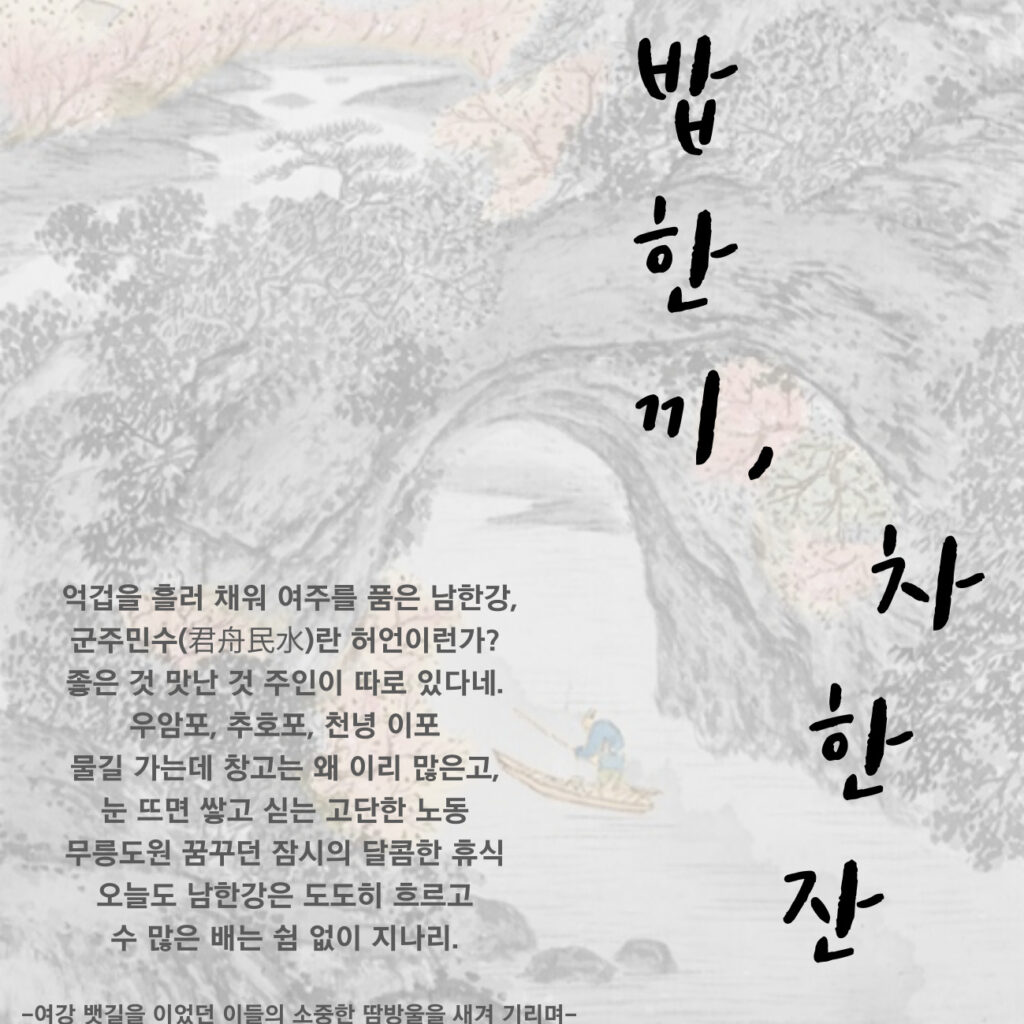 밥 한 끼,
차 한 잔
억겁을 흘러 채워 여주를 품은 남한강,
군주민수(君舟民水)란 허언이런가?
좋은 것 맛난 것 주인이 따로 있다네.
우암포, 추호포, 천녕 이포
물길 가는데 창고는 왜 이리 많은고,
눈 뜨면 쌓고 싣는 고단한 노동
무릉도원 꿈꾸던 잠시의 달콤한 휴식
오늘도 남한강은 도도히 흐르고
수 많은 배는 쉼 없이 지나리.
-여강 뱃길을 이었던 이들의 소중한 땀방울을 새겨 기리며-